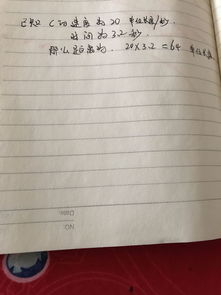 已知 C的速度为20 单位长度/秒.
时间为3.2秒.
那么距离为. 20×3.2=64 单位长度
Date.
NO.